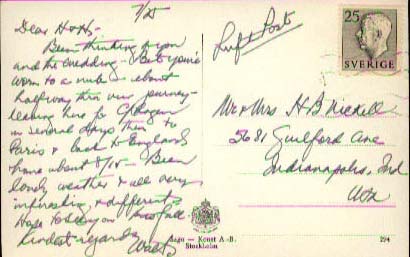 7/25
Dear H & H -
Been thinking of you
and the wedding - Bet you're
worn to a nub - about
halfway thru our journey -
leaving here for C'hagen
in several days then to
Paris & back to England
home about 8/15 - Been
lovely weather & all very
interesting & different -
Hope to see you this fall
kindest regards
Walts
Luft Post
25
SVERIGE
Mr & Mrs H B Nickell
5681 Guilford Ave
Indianapolis, Ind
USA
Sago - Konst A.-B.
Stockholm
294